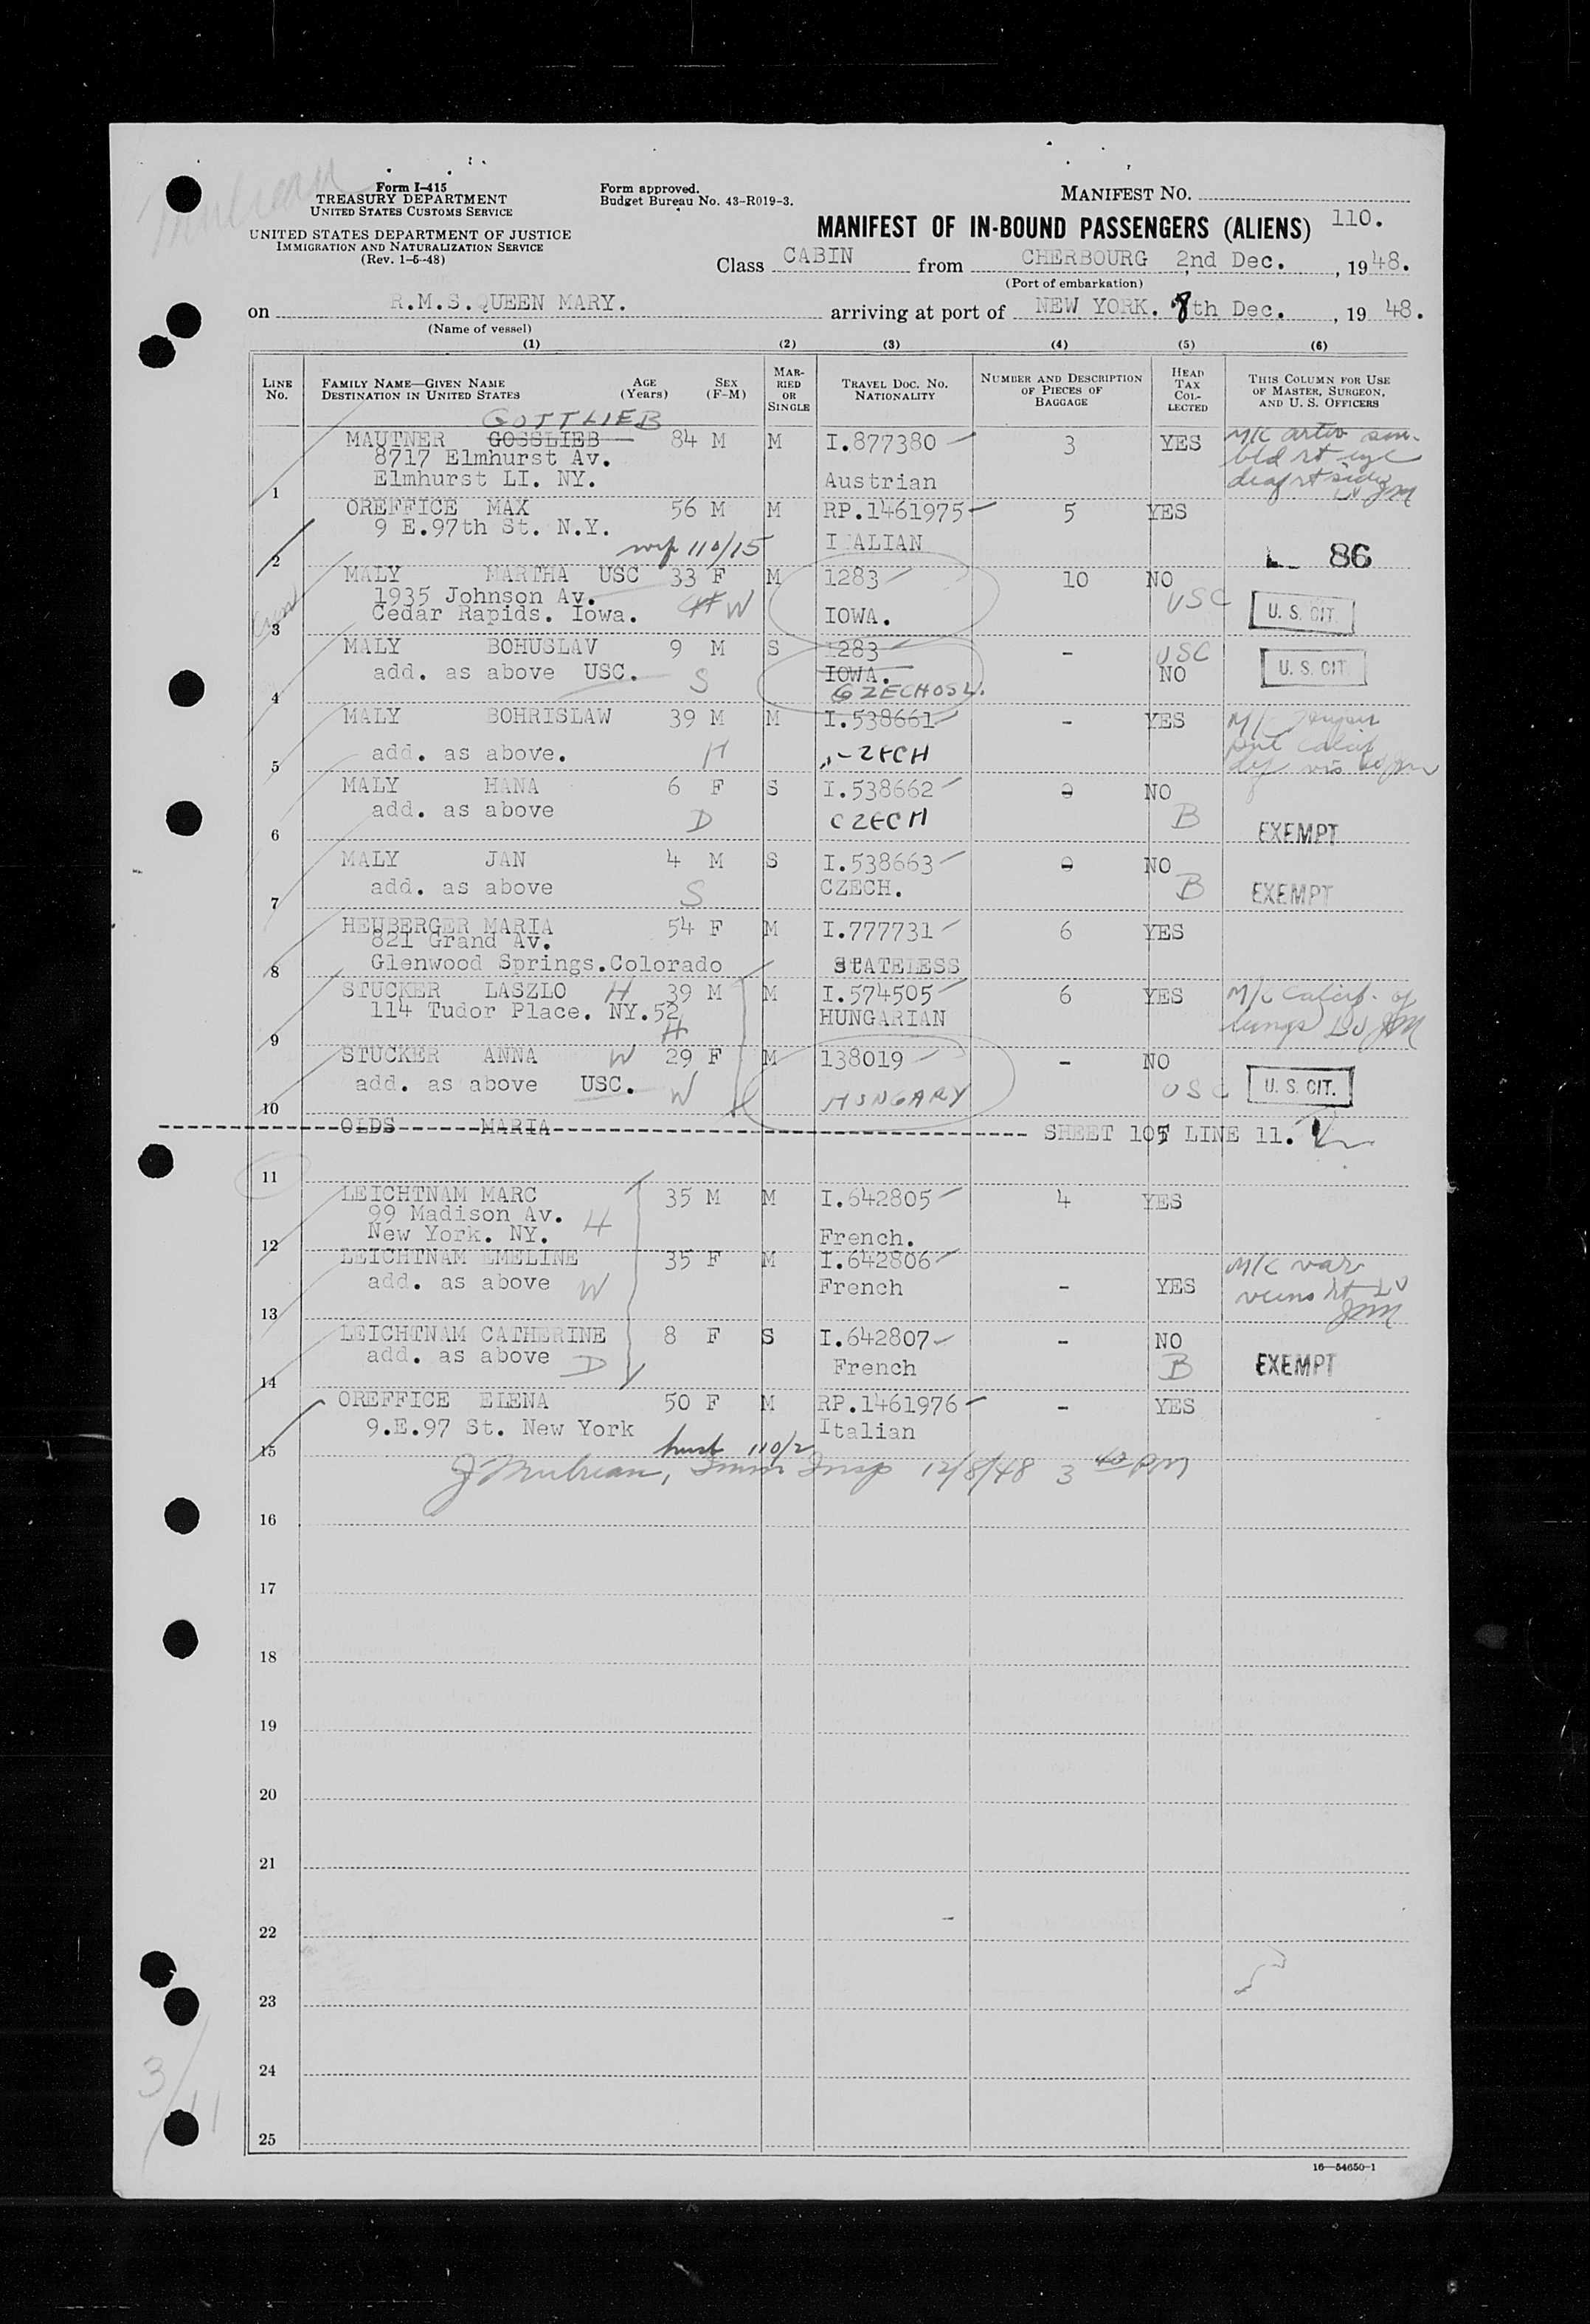 Form I-415
TREASURY DEPARTMENT
UNITED STATES CUSTOMS SERVICE
UNITED STATES DEPARTMENT OF JUSTICE
IMMIGRATION AND NATURALIZATION SERVICE
(Rev. 1-5-48)
Form approved.
Budget Bureau No. 43-R019-3.
MANIFEST No.
MANIFEST OF IN-BOUND PASSENGERS (ALIENS) 110.
Class CABIN from CHERBOURG 2nd Dec., 1948.
(Port of embarkation)
on R.M.S. QUEEN MARY. arriving at port of NEW YORK. 8th Dec., 1948.
(Name of vessel)
(1) (2) (3) (4) (5) (6)
LINE No. FAMILY NAME—GIVEN NAME DESTINATION IN UNITED STATES AGE (Years) SEX (F-M) MARRIED OR SINGLE TRAVEL DOC. NO. NATIONALITY NUMBER AND DESCRIPTION OF PIECES OF BAGGAGE HEAD TAX COLLECTED THIS COLUMN FOR USE OF MASTER, SURGEON, AND U. S. OFFICERS
GOTTLIEB
MAUTNER GOSSLIEB 84 M M I.877380 3 YES M/C
8717 Elmhurst Av.
Elmhurst LI. NY. Austrian
1
OREFFICE MAX 56 M M RP.1461975 5 YES
9 E.97th St. N.Y. ITALIAN
2 wife 110/15 86
MALY MARTHA USC 33 F M 1283 10 NO
1935 Johnson Av. W USC
Cedar Rapids. Iowa. IOWA. U. S. CIT.
3
MALY BOHUSLAV 9 M S 1283 - USC
add. as above USC. S IOWA. NO U. S. CIT.
4 CZECHOSL.
MALY BOHRISLAW 39 M M I.538661 - YES
add. as above. H CZECH
5
MALY HANA 6 F S I.538662 NO
add. as above D CZECH B EXEMPT
6
MALY JAN 4 M S I.538663 NO
add. as above S CZECH. B EXEMPT
7
HEUBERGER MARIA 54 F M I.777731 6 YES
821 Grand Av.
Glenwood Springs.Colorado STATELESS
8
STUCKER LASZLO H 39 M M I.574505 6 YES M/C calcif. of
114 Tudor Place. NY.52 HUNGARIAN lungs
9 H
STUCKER ANNA W 29 F M 138019 - NO
add. as above USC. W HUNGARY USC U. S. CIT.
10
OLDS MARIA SHEET 105 LINE 11.
11
LEICHTNAM MARC 35 M M I.642805 4 YES
99 Madison Av. H
New York. NY. French.
12
LEICHTNAM EMELINE 35 F M I.642806 M/C var
add. as above W French - YES veins rt
13
LEICHTNAM CATHERINE 8 F S I.642807 - NO
add. as above D French B EXEMPT
14
OREFFICE ELENA 50 F M RP.1461976 - YES
9.E.97 St. New York Italian
15 husb 110/2
J Mulrean, Imm Insp 12/8/48 3 40 PM
16
17
18
19
20
21
22
23
24
25
3/11
16—54650-1